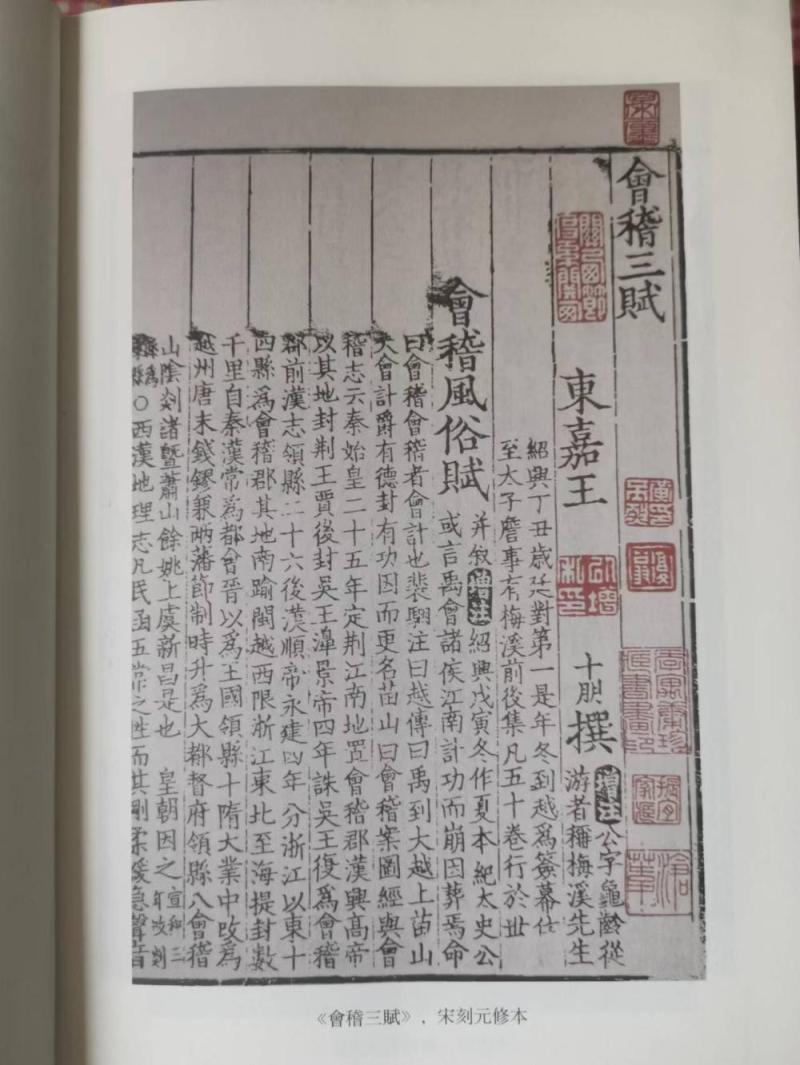 會稽三賦
東嘉王十朋撰增注公字龜齡從
游者稱梅溪先生
紹興丁丑歲廷對第一是年冬到越爲簽幕仕
至太子詹事有梅溪前後集凡五十卷行於世
會稽風俗賦并敘增注紹興戊寅冬作夏本紀太史公
或言禹會諸侯江南計功而崩因葬焉命
曰會稽會稽者會計也裴駰注曰越傳曰禹到大越上苗山
大會計爵有德封有功因而更名苗山曰會稽案圖經與會
稽志云秦始皇二十五年定荆江南地置會稽郡漢興高帝
以其地封荆王賈後封吳王濞景帝四年誅吳王復爲會稽
郡前漢志領縣二十六後漢順帝永建四年分浙江以東十
四縣爲會稽郡其地南踰閩越西限浙江東北至海提封數
千里自秦漢常爲都會晉以爲王國領縣十隋大業中改爲
越州唐末錢鏐兼兩藩節制時升爲大都督府領縣八會稽
山陰剡諸暨蕭山餘姚上虞新昌是也 皇朝因之宣和三
年改剡
縣爲
嵊縣○西漢地理志凡民函五常之性而其剛柔緩急聲音
《會稽三賦》，宋刻元修本